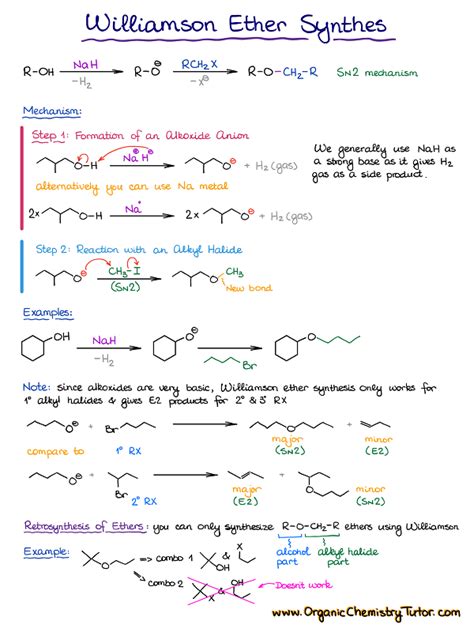 Williamson Ether Synthes
R-OH NaH -H₂ R-O⊖ RCH₂X -X⊖ R-O-CH₂-R SN2 mechanism
Mechanism:
Step 1: Formation of an Alkoxide Anion
O-H Na⊕ H⊖ O⊖ + H₂ (gas)
We generally use NaH as
a strong base as it gives H₂
gas as a side product.
alternatively you can use Na metal
2x O-H Na° 2x O⊖ + H₂ (gas)
Step 2: Reaction with an Alkyl Halide
O⊖ CH₃-I (SN2) O CH₃
New bond
Examples:
OH NaH -H₂ O⊖ Br O
Note: since alkoxides are very basic, Williamson ether synthesis only works for
1° alkyl halides & gives E2 products for 2° & 3° RX
O⊖ + Br O +
compare to 1° RX major (SN2) minor (E2)
O⊖ + Br + O
2° RX major (E2) minor (SN2)
Retrosynthesis of Ethers: you can only synthesize R-O-CH₂-R ethers using Williamson
alcohol part alkyl halide part
Example: O => combo 1 X & OH
=> combo 2 X & OH Doesn't work
www.OrganicChemistryTutor.com